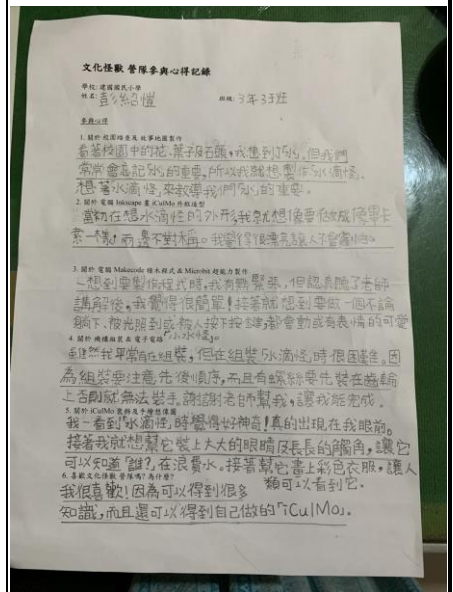 文化怪獸 營隊參與心得記錄
學校: 建國國民小學
姓名: 彭紹愷 班級: 3年3班
參與心得
1. 關於校園踏查及故事地圖製作
看著校園中的花、葉子及石頭,我想到了「水」。但我們
常常會忘記「水」的重要,所以我就想製作「水滴怪」
想著水滴怪,來教導我們「水」的重要。
2. 關於 電腦 Inkscape 畫 iCulMo 外殼造型
當初在想水滴怪的外形,我就想像要做成像畢卡
索一樣,兩邊不對稱。我覺得很漂亮讓人不會
3. 關於 電腦 Makecode 積木程式並 Microbit 超能力製作
一想到要製作程式時,我有點緊張,但認真聽了老師
講解後,我覺得很簡單!接著就想到要做一個不論
躺下、被光照到或被人按下按鍵,都會動或有表情的可愛
「小水怪」。
4. 關於 機構組裝 & 電子電路
雖然我平常有在組裝,但在組裝「水滴怪」時很困難。因
為組裝要注意先後順序,而且有螺絲要先裝在齒輪
上否則就無法裝手。謝謝老師幫我,讓我能完成。
5. 關於 iCulMo 裝飾及手繪想像圖
我一看到「水滴怪」時覺得好神奇!真的出現在我眼前。
接著我就想幫它裝上大大的眼睛及長長的觸角,讓它
可以知道「誰?」在浪費水。接著幫它畫上彩色衣服,讓人
類可以看到它。
6. 喜歡文化怪獸 營隊嗎? 為什麼?
我很喜歡!因為可以得到很多
知識,而且還可以得到自己做的「iCulMo」。